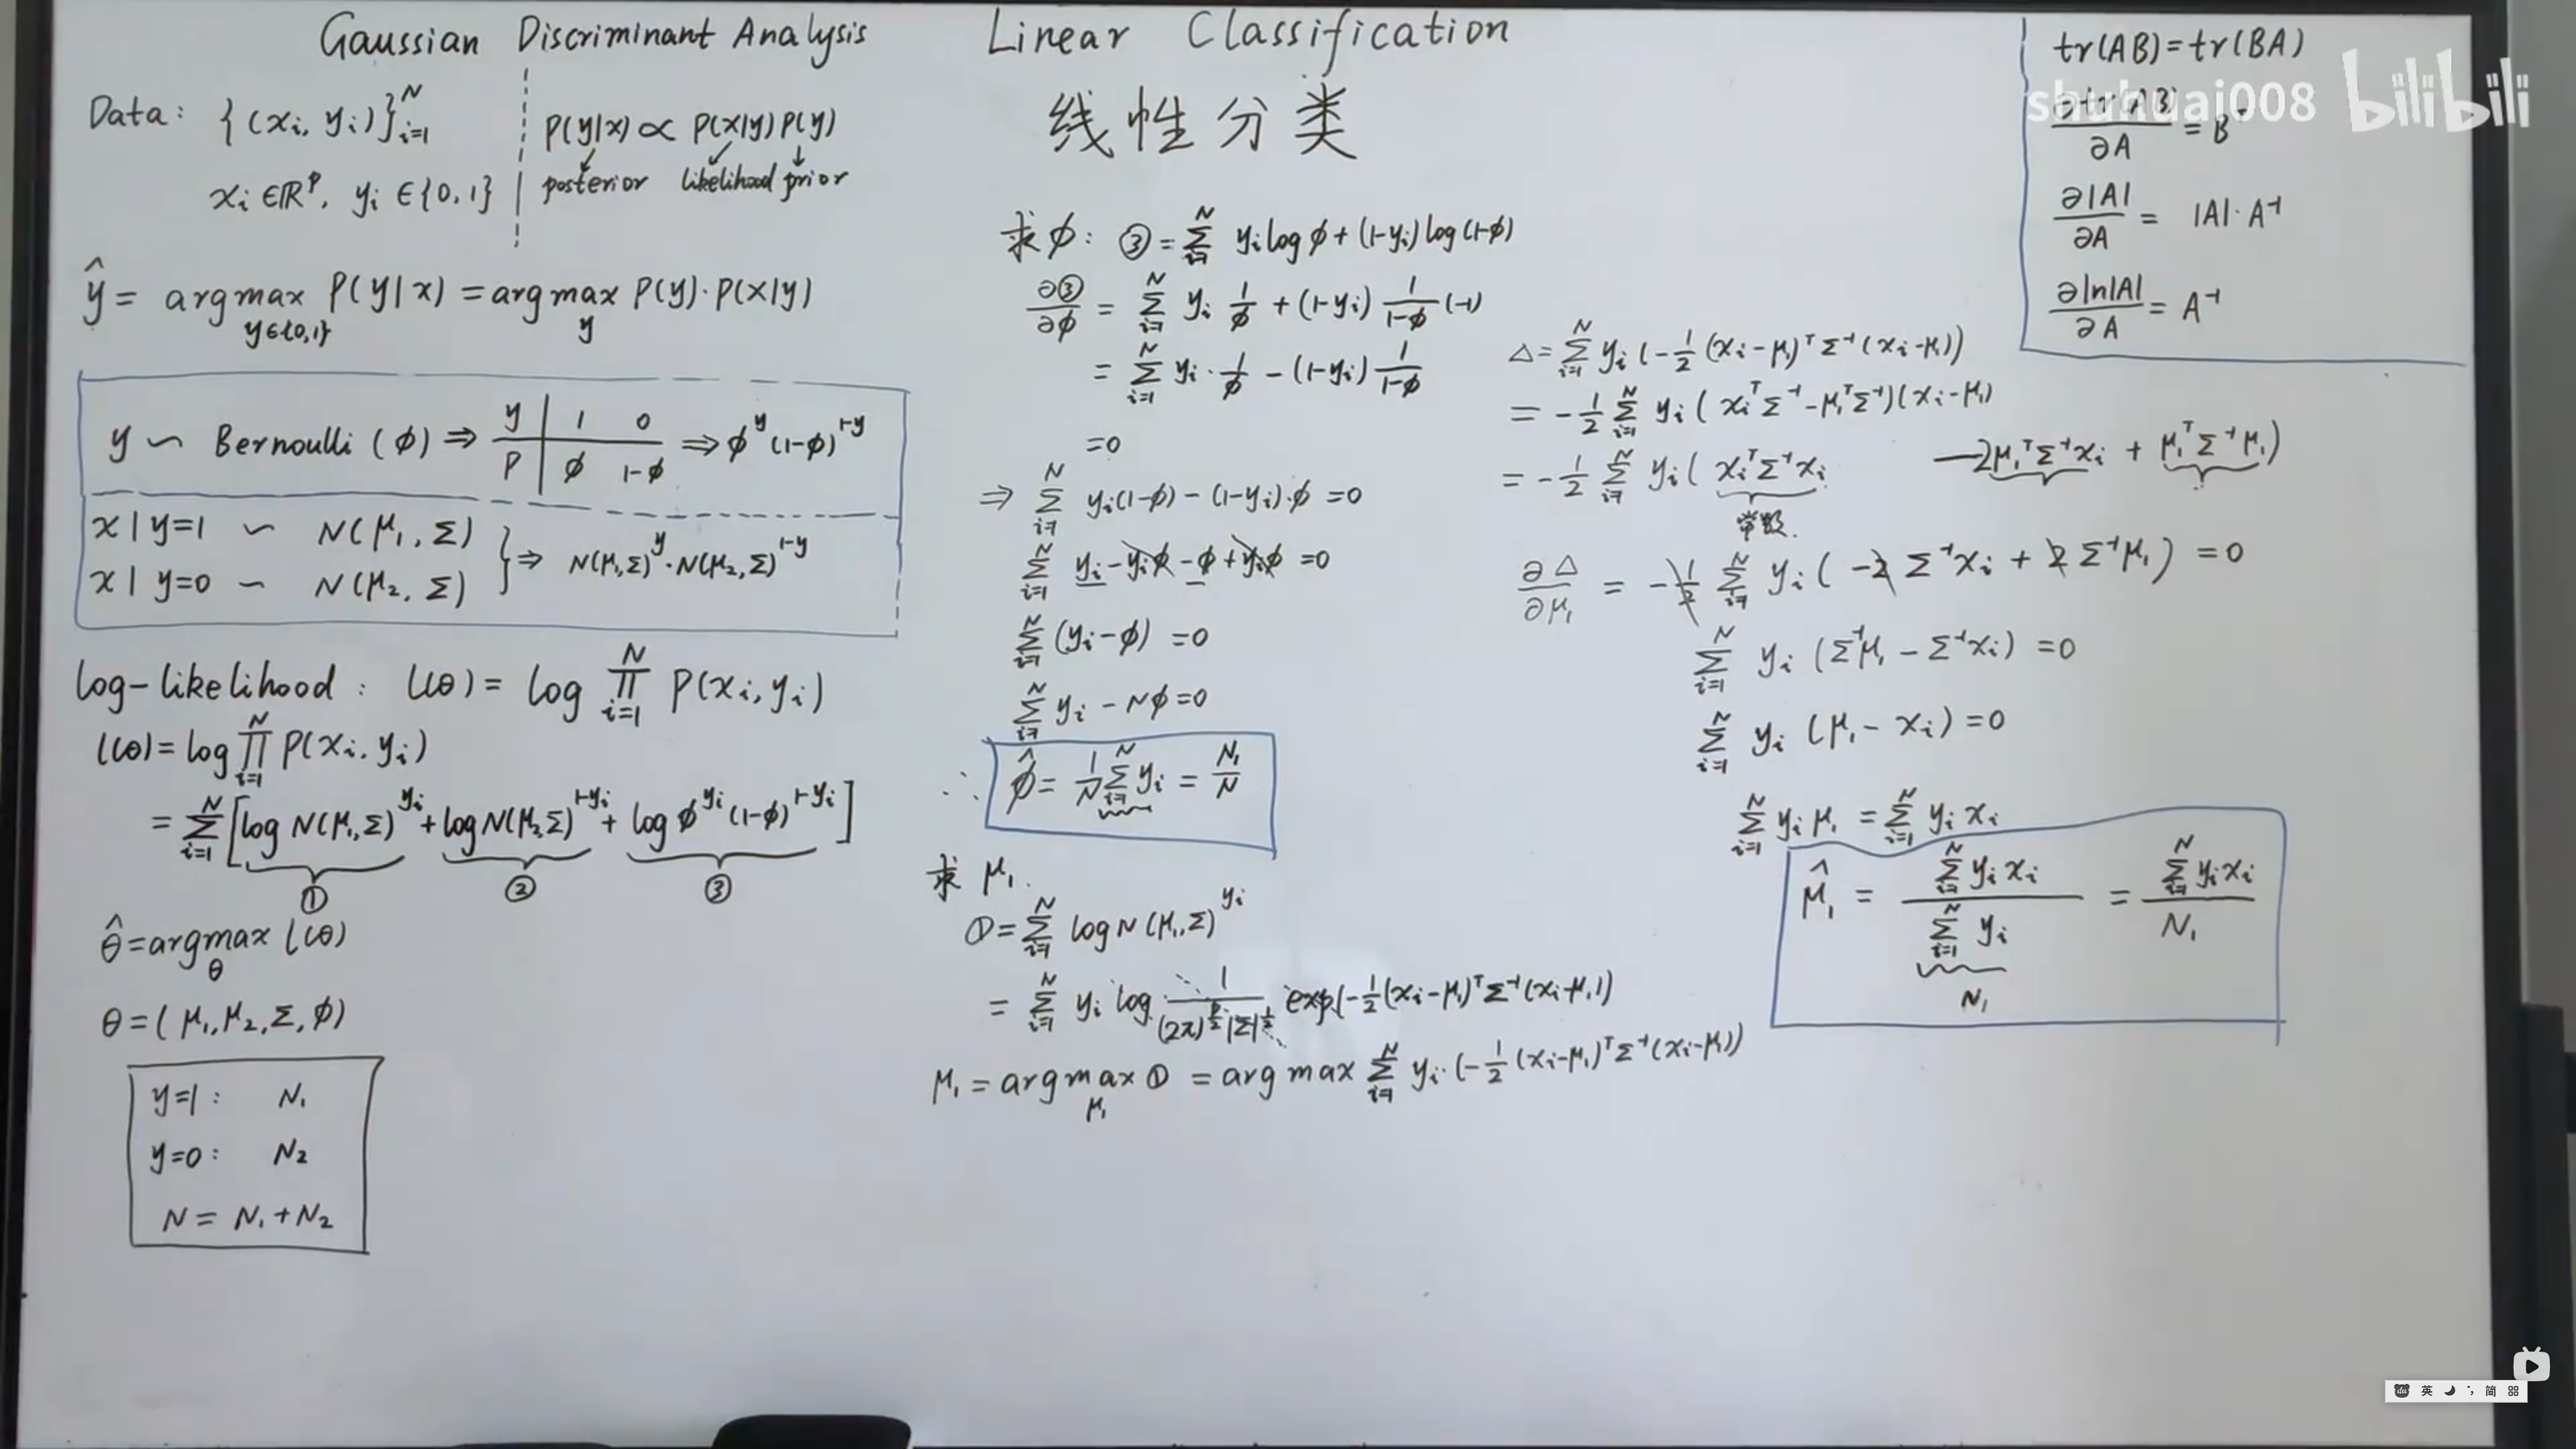 Gaussian Discriminant Analysis
Data: {(xᵢ, yᵢ)}ᵢ₌₁ᴺ
xᵢ ∈ ℝᵖ, yᵢ ∈ {0, 1}
P(y|x) ∝ P(x|y) P(y)
posterior likelihood prior
ŷ = argmax_{y∈{0,1}} P(y|x) = argmax_y P(y)·P(x|y)
y ~ Bernoulli (φ) ⇒ y | 1 0 ⇒ φ^y (1-φ)^{1-y}
P | φ 1-φ
x|y=1 ~ N(μ₁, Σ)
x|y=0 ~ N(μ₂, Σ)
} ⇒ N(μ₁,Σ)^y · N(μ₂,Σ)^{1-y}
log-likelihood: l(θ) = log ∏_{i=1}^N P(xᵢ, yᵢ)
l(θ) = log ∏_{i=1}^N P(xᵢ, yᵢ)
= Σ_{i=1}^N [log N(μ₁,Σ)^{yᵢ} + log N(μ₂,Σ)^{1-yᵢ} + log φ^{yᵢ} (1-φ)^{1-yᵢ}]
① ② ③
θ̂ = argmax_θ l(θ)
θ = (μ₁, μ₂, Σ, φ)
y=1: N₁
y=0: N₂
N = N₁ + N₂
Linear Classification
线性分类
求 φ: ③ = Σ_{i=1}^N yᵢ log φ + (1-yᵢ) log (1-φ)
∂③/∂φ = Σ_{i=1}^N yᵢ 1/φ + (1-yᵢ) 1/(1-φ) (-1)
= Σ_{i=1}^N yᵢ · 1/φ - (1-yᵢ) 1/(1-φ)
= 0
⇒ Σ_{i=1}^N yᵢ(1-φ) - (1-yᵢ)·φ = 0
Σ_{i=1}^N yᵢ - yᵢφ - φ + yᵢφ = 0
Σ_{i=1}^N (yᵢ - φ) = 0
Σ_{i=1}^N yᵢ - Nφ = 0
∴ φ̂ = 1/N Σ_{i=1}^N yᵢ = N₁/N
求 μ₁.
① = Σ_{i=1}^N log N(μ₁,Σ)^{yᵢ}
= Σ_{i=1}^N yᵢ log 1/((2π)^{p/2} |Σ|^{1/2}) exp(-1/2 (xᵢ-μ₁)ᵀ Σ⁻¹ (xᵢ-μ₁))
μ₁ = argmax_{μ₁} ① = arg max Σ_{i=1}^N yᵢ (-1/2 (xᵢ-μ₁)ᵀ Σ⁻¹ (xᵢ-μ₁))
Δ = Σ_{i=1}^N yᵢ (-1/2 (xᵢ-μ₁)ᵀ Σ⁻¹ (xᵢ-μ₁))
= -1/2 Σ_{i=1}^N yᵢ (xᵢᵀΣ⁻¹ - μ₁ᵀΣ⁻¹)(xᵢ-μ₁)
= -1/2 Σ_{i=1}^N yᵢ (xᵢᵀΣ⁻¹xᵢ - 2μ₁ᵀΣ⁻¹xᵢ + μ₁ᵀΣ⁻¹μ₁)
常数.
∂Δ/∂μ₁ = -1/2 Σ_{i=1}^N yᵢ (-2 Σ⁻¹xᵢ + 2 Σ⁻¹μ₁) = 0
Σ_{i=1}^N yᵢ (Σ⁻¹μ₁ - Σ⁻¹xᵢ) = 0
Σ_{i=1}^N yᵢ (μ₁ - xᵢ) = 0
Σ_{i=1}^N yᵢ μ₁ = Σ_{i=1}^N yᵢ xᵢ
μ̂₁ = Σ_{i=1}^N yᵢ xᵢ / Σ_{i=1}^N yᵢ = Σ_{i=1}^N yᵢ xᵢ / N₁
N₁
tr(AB) = tr(BA)
∂tr(AB)/∂A = Bᵀ
∂|A|/∂A = |A|·A⁻¹
∂ln|A|/∂A = A⁻¹
shuhuai008 bilibili
du 英 简